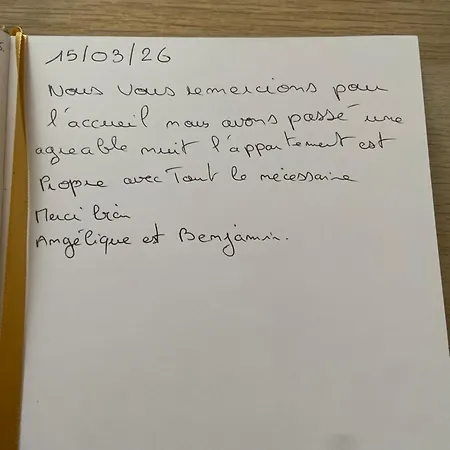 15/03/26
Nous Vous remercions pour
l'accueil nous avons passé une
agreable nuit l'appartement est
Propre avec Tout le nécessaire
Merci bien
Angélique et Benjamin.